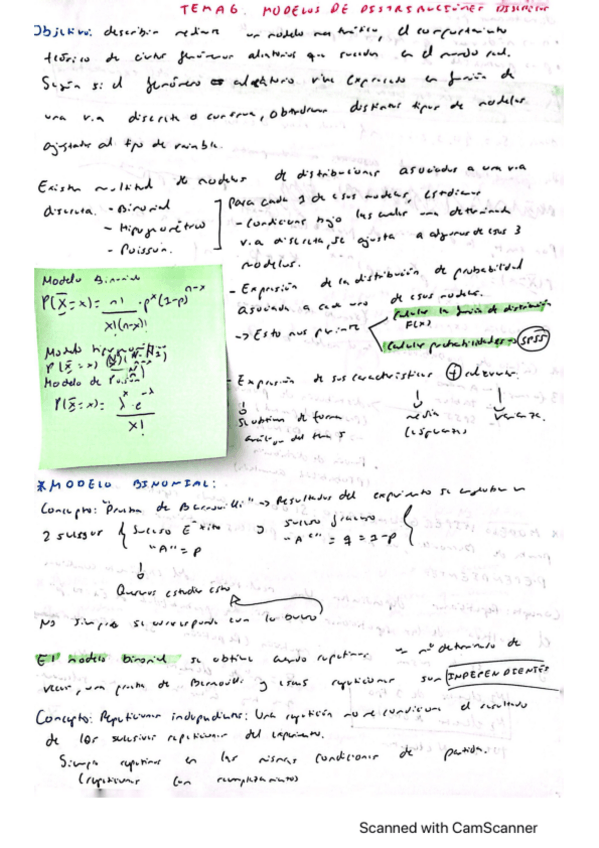 TEMA 6. MODELOS DE DISTRIBUCIONES DISCRETAS
Objetivo: describir mediante un modelo matemático, el comportamiento
teórico de ciertos fenómenos aleatorios que suceden en el mundo real.
Según si el fenómeno aleatorio viene expresado en función de
una v.a discreta o continua, obtendremos distintos tipos de modelos
ajustados al tipo de variable.
Existen multitud de modelos de distribuciones asociados a una v.a
discreta. - Binomial
- Hipergeométrico
- Poisson.
Para cada 1 de esos modelos, estudiamos
- Condiciones bajo las cuales una determinada
v.a discreta, se ajusta a algunos de esos 3
modelos.
- Expresión de la distribución de probabilidad
asociada a cada uno de esos modelos.
-> Esto nos permite
Calcular la función de distribución
F(x)
Calcular probabilidades -> SPSS
- Expresión de sus características + relevantes.
Se obtiene de forma
del tema 5
media
(esperanza)
Varianza.
Modelo Binomial
P(X=x) = n! / x!(n-x)! · p^x (1-p)^n-x
Modelo hipergeométrico
P(X=x)
Modelo de Poisson
P(X=x) = λ^x · e^-λ / x!
*MODELO BINOMIAL:
Concepto: "Prueba de Bernouilli" -> Resultados del experimento se engloban en
2 sucesos { Suceso Éxito "A" = p y suceso fracaso "A^c" = q = 1-p }
Queremos estudiar esto
No siempre se corresponde con lo bueno
El modelo binomial se obtiene cuando repetimos un nº determinado de
veces, una prueba de Bernouilli y esas repeticiones son INDEPENDIENTES
Concepto: Repeticiones independientes: Una repetición no condiciona el resultado
de las sucesivas repeticiones del experimento.
Siempre repetimos en las mismas condiciones de partida.
(repeticiones con reemplazamiento)
Scanned with CamScanner